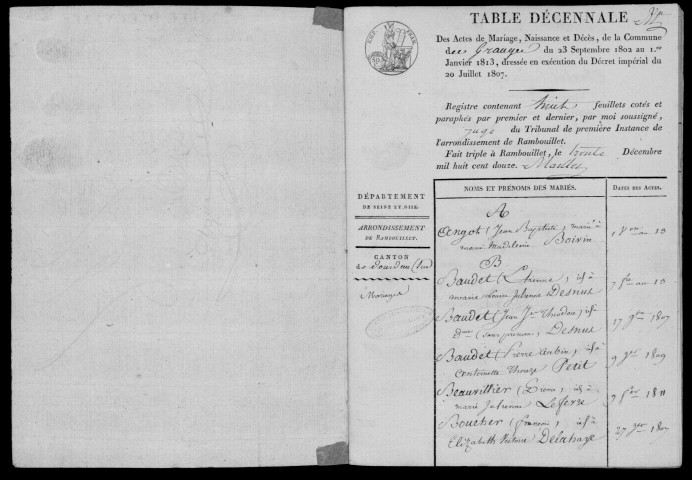 TABLE DÉCENNALE
Des Actes de Mariage, Naissance et Décès, de la Commune
des Granges du 23 Septembre 1802 au 1.er
Janvier 1813, dressée en exécution du Décret impérial du
20 Juillet 1807.
Registre contenant huit feuillets cotés et
paraphés par premier et dernier, par moi soussigné,
juge du Tribunal de première Instance de
l'arrondissement de Rambouillet.
Fait triple à Rambouillet, le trente Décembre
mil huit cent douze.
DÉPARTEMENT
DE SEINE ET OISE.
ARRONDISSEMENT
DE RAMBOUILLET.
CANTON
de Dourdan (Sud)
Mariages
NOMS ET PRÉNOMS DES MARIÉS.
DATES DES ACTES.
A
Angot (Jean Baptiste) marié à
marie Madeleine Boivin
an 13
B
Baudet (Etienne) id à
marie Louise Julienne Desnus
7 an 13
Baudet (Jean Theodore) id à
(sans prenom) Desnus
17 1807
Baudet (Pierre Aubin) id à
Petit
9 1809
Beauvillier (Pierre) id à
marie Julienne Lefevre
9 1811
Boucher (françois) id à
Elizabeth Victoire Delahaye
27